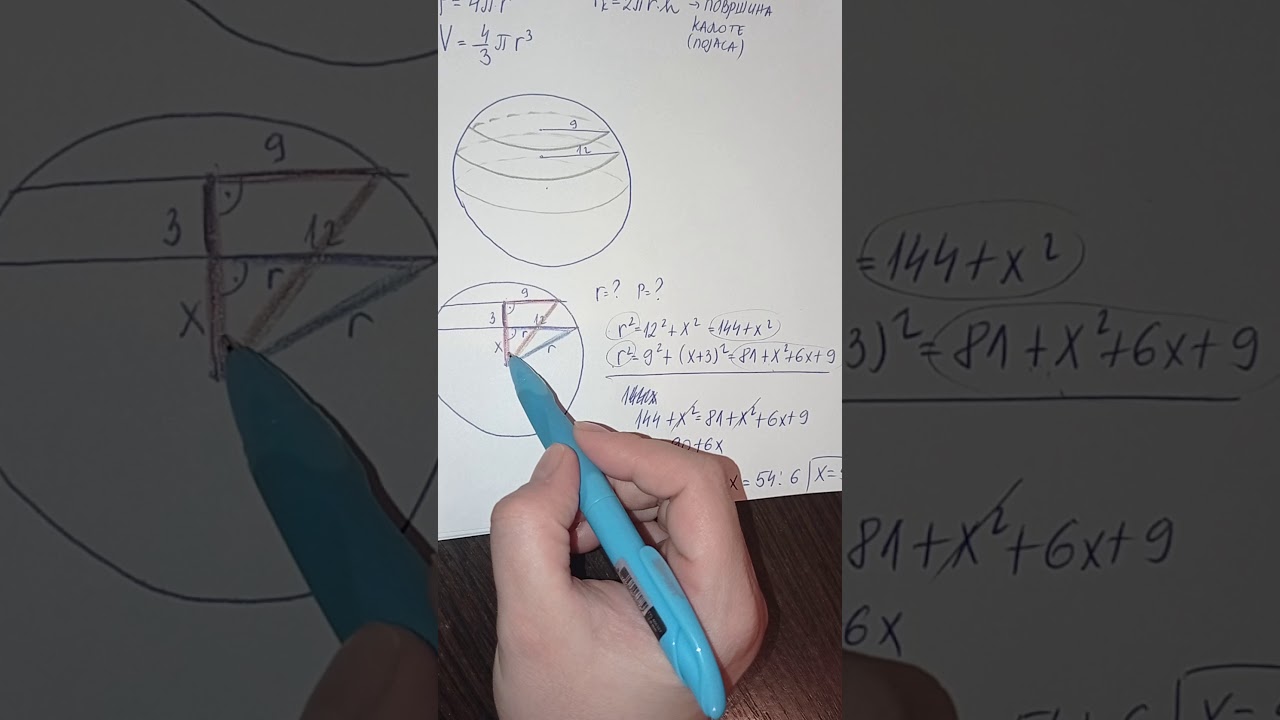 V = 4/3 π r³
= 2πr·h → ПОВРШИНА
КАЛОТЕ
(ПОЈАСА)
9
12
r=? P=?
9
3
12
r
x
r
r² = 12² + x² = 144 + x²
r² = 9² + (x+3)² = 81 + x² + 6x + 9
144 + x² = 81 + x² + 6x + 9
+6x
x = 54:6 x=
9
3
12
r
x
r
=144+x²
3)² = 81 + x² + 6x + 9
81 + x² + 6x + 9
6x